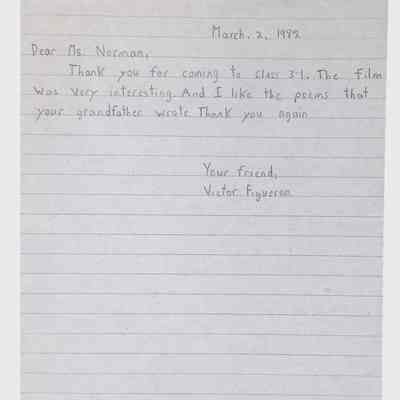 March. 2, 1992
Dear Ms. Norman,
Thank you for coming to class 3-1. The film
was very interesting. And I like the poems that
your grandfather wrote. Thank you again
Your friend,
Victor Figueroa